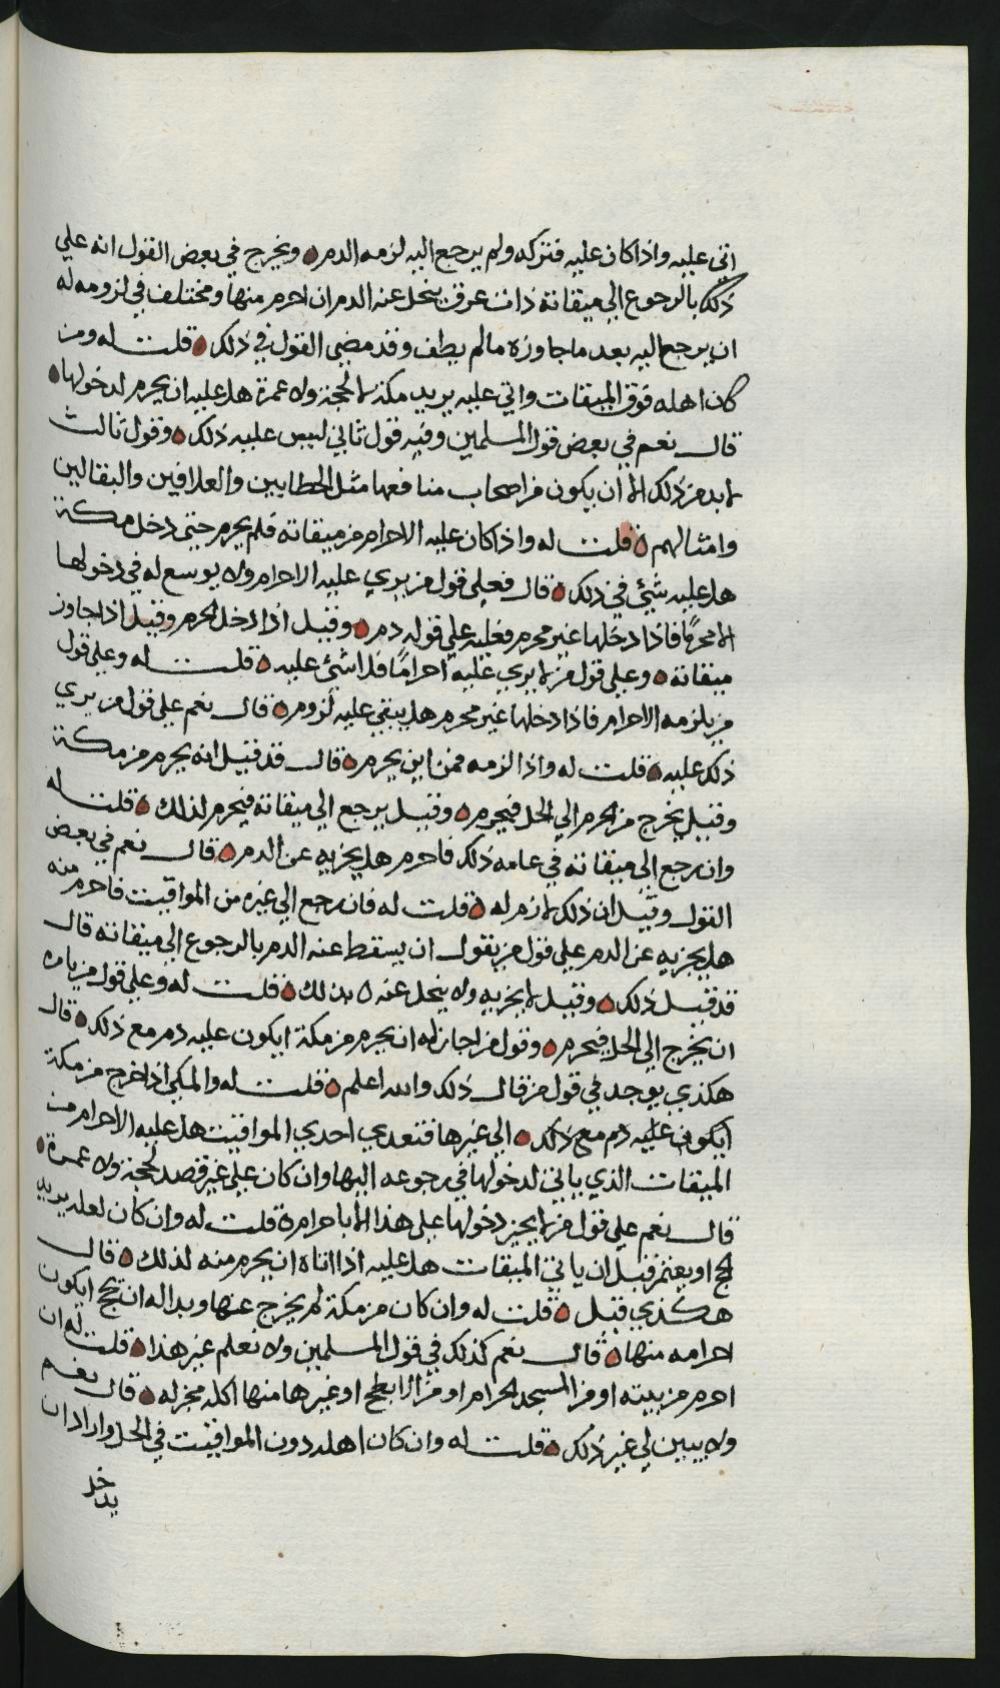 اتى عليه واذا كان عليه فتركه ولم يرجع اليه لزمه الدم ويخرج في بعض القول انه علي
ذلك بالرجوع الي ميقاته ذات عرق ينحل عنه الدم ان احرم منها ومختلف في لزومه له
ان يرجع اليه بعد ما جاوزه ما لم يطف وقد مضى القول في ذلك قلت له ومن
كان اهله فوق الميقات واتي عليه يريد مكة لا لحجة ولا عمرة هل عليه ان يحرم لدخولها
قال نعم في بعض قول المسلمين وفيه قول ثاني ليس عليه ذلك وقول ثالث
لا بد من ذلك الا ان يكون من اصحاب منافعها مثل الحطابين والعلافين والبقالين
وامثالهم قلت له واذا كان عليه الاحرام من ميقاته فلم يحرم حتى دخل مكة
هل عليه شيئ في ذلك قال فعلى قول من يري عليه الاحرام ولا يوسع له في دخولها
الا محرمًا فاذا دخلها غير محرم فعليه علي قوله دم وقيل اذا دخل الحرم وقيل اذا جاوز
ميقاته وعلي قول من لا يري عليه احرامًا فلا شئ عليه قلت له وعلي قول
من يلزمه الاحرام فاذا دخلها غير محرم هل يبقي عليه لزوم قال نعم علي قول من يري
ذلك عليه قلت له واذا لزمه فمن اين يحرم قال قد قيل انه يحرم من مكة
وقيل يخرج من الحرم الي الحل فيحرم وقيل يرجع الي ميقاته فيحرم لذلك قلت له
وان رجع الي ميقاته في عامه ذلك فاحرم هل يجزيه عن الدم قال نعم في بعض
القول وقيل ان ذلك لازم له قلت له فان رجع الي غيره من المواقيت فاحرم منه
هل يجزيه عن الدم علي قول من يقول ان يسقط عنه الدم بالرجوع الي ميقاته قال
قد قيل ذلك وقيل لا يجزيه ولا ينحل عنه بذلك قلت له وعلي قول من يامره
ان يخرج الي الحل فيحرم وقول من اجاز له ان يحرم من مكة ايكون عليه دم مع ذلك قال
هكذي يوجد في قول من قال ذلك والله اعلم قلت له والمكي اذا خرج من مكة
ايكون عليه دم مع ذلك الي غيرها فتعدي احدي المواقيت هل عليه الاحرام من
الميقات الذي ياتي لدخولها في رجوعه اليها وان كان علي غير قصد لحجة ولا عمرة
قال نعم علي قول من لا يجيز دخولها علي هذا الا باحرام قلت له وان كان لعله يريد
لحج او يعتمر قبل ان ياتي الميقات هل عليه اذا اتاه ان يحرم منه لذلك قال
هكذي قيل قلت له وان كان من مكة لم يخرج عنها وبدا له ان يحج ايكون
احرامه منها قال نعم كذلك في قول المسلمين ولا نعلم غير هذا قلت له ان
احرم من بيته او من المسجد الحرام او من الابطح او غيرها منها اكله مجز له قال نعم
ولا يبين لي غير ذلك قلت له وان كان اهله دون المواقيت في الحل واراد ان
يدخل